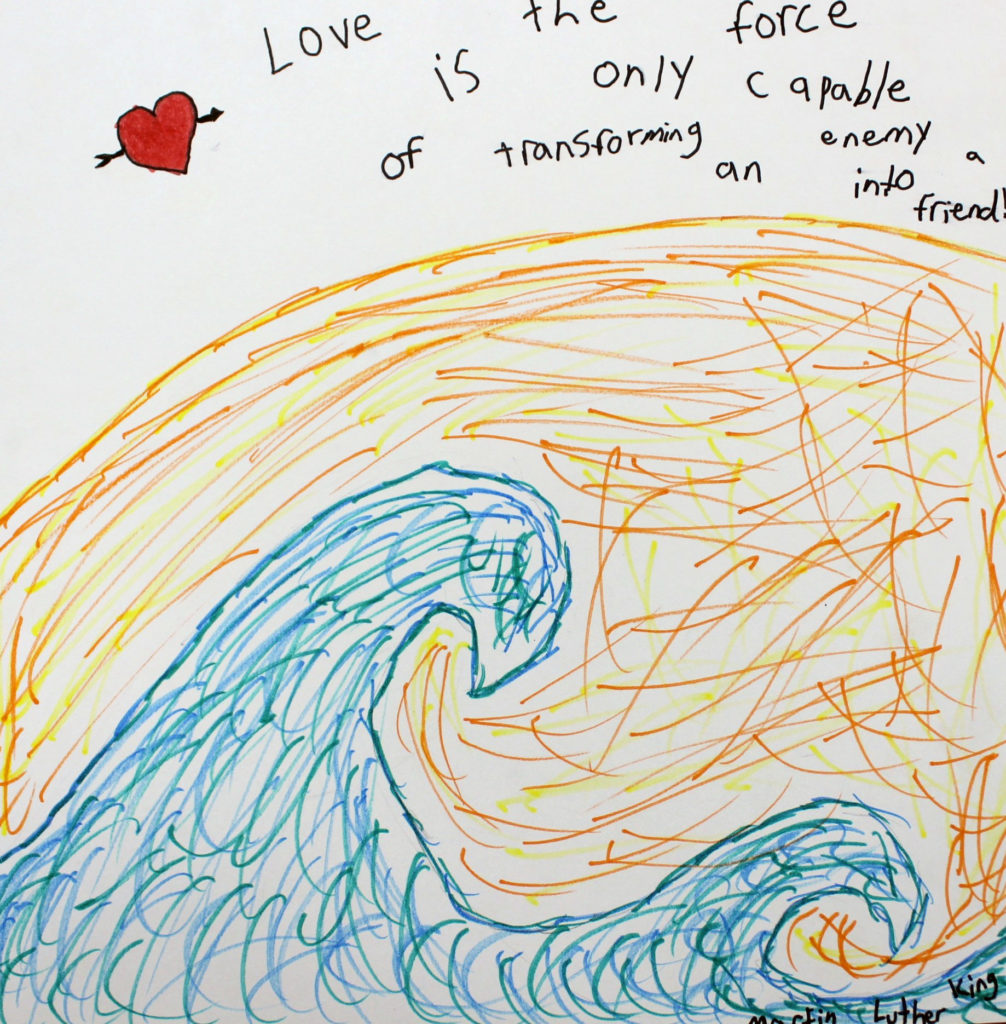 Love the force
is only capable
of transforming an enemy into a
friend!
Martin Luther King